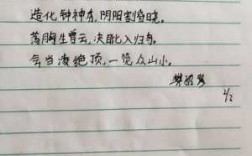 造化钟神秀，阴阳割昏晓。
荡胸生曾云，决眦入归鸟。
会当凌绝顶，一览众山小。